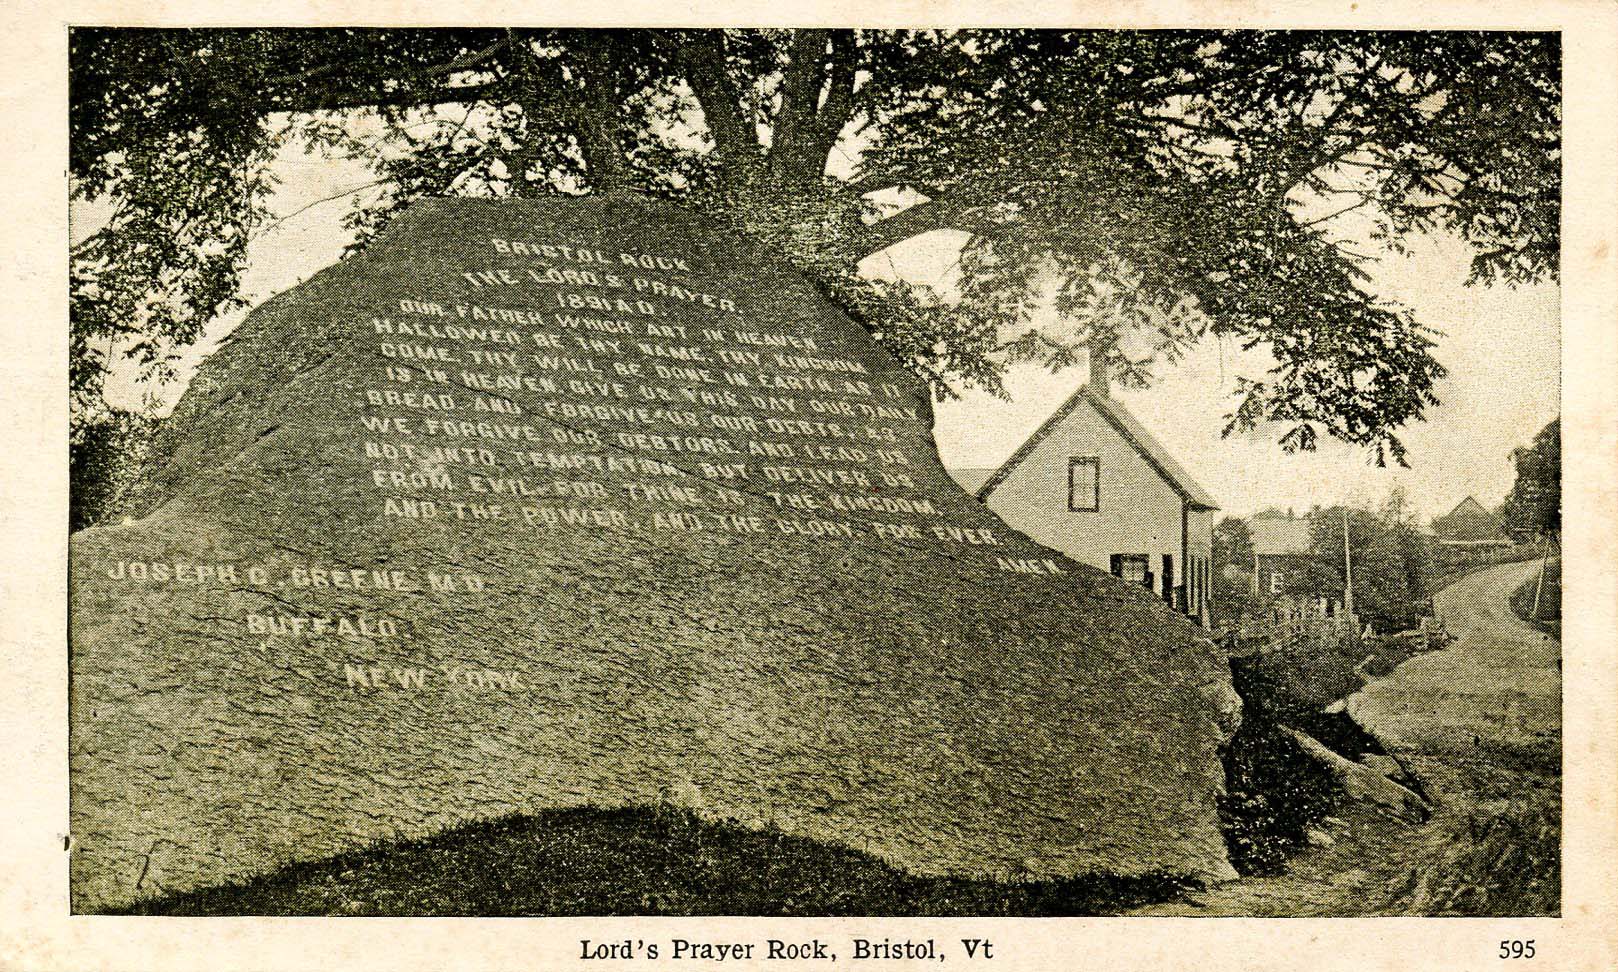 BRISTOL ROCK
THE LORD'S PRAYER.
1891 A D.
OUR FATHER WHICH ART IN HEAVEN
HALLOWED BE THY NAME. THY KINGDOM
COME. THY WILL BE DONE IN EARTH AS IT
IS IN HEAVEN. GIVE US THIS DAY OUR DAILY
BREAD. AND FORGIVE US OUR DEBTS, AS
WE FORGIVE OUR DEBTORS. AND LEAD US
NOT INTO TEMPTATION, BUT DELIVER US
FROM EVIL. FOR THINE IS THE KINGDOM.
AND THE POWER, AND THE GLORY, FOR EVER.
AMEN.
JOSEPH C. GREENE M.D.
BUFFALO.
NEW YORK
Lord's Prayer Rock, Bristol, Vt
595